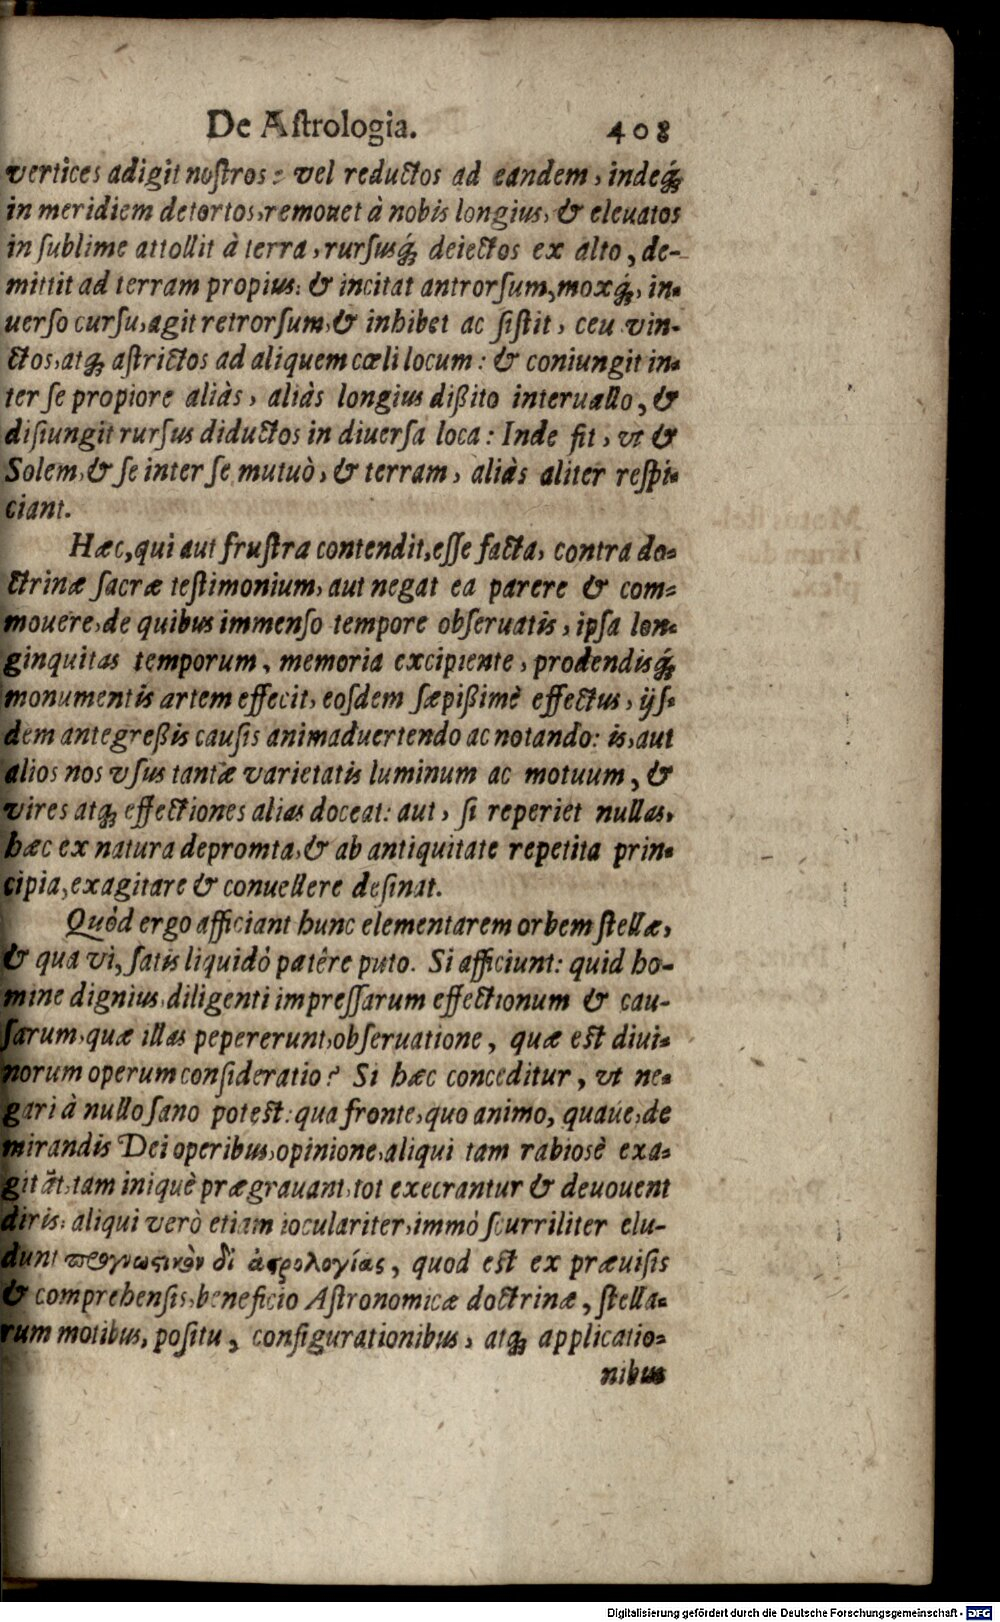 De Aſtrologia. 408
vertices adigit noſtros: vel reductos ad eandem, indeq́;
in meridiem detortos, remouet à nobis longius, & eleuatos
in ſublime attollit à terra, rurſusq́; deiectos ex alto, de-
mittit ad terram propius: & incitat antrorſum, moxq́;, in-
uerſo curſu, agit retrorſum, & inhibet ac ſiſtit, ceu vin-
ctos, atq; aſtrictos ad aliquem cœli locum: & coniungit in-
ter ſe propiore aliàs, aliàs longius dißito interuallo, &
diſiungit rurſus diductos in diuerſa loca: Inde fit, vt &
Solem, & ſe inter ſe mutuò, & terram, aliàs aliter reſpi-
ciant.
Hæc, qui aut fruſtra contendit, eſſe facta, contra do-
ctrinæ ſacræ teſtimonium, aut negat ea parere & com-
mouere, de quibus immenſo tempore obſeruatis, ipſa lon-
ginquitas temporum, memoria excipiente, prodendisq́;
monumentis artem effecit, eoſdem ſæpißimè effectus, ijſ-
dem antegreßis cauſis animaduertendo ac notando: is, aut
alios nos vſus tantæ varietatis luminum ac motuum, &
vires atq; effectiones alias doceat: aut, ſi reperiet nullas,
hæc ex natura depromta, & ab antiquitate repetita prin-
cipia, exagitare & conuellere deſinat.
Quòd ergo afficiant hunc elementarem orbem ſtellæ,
& qua vi, ſatis liquidò patêre puto. Si afficiunt: quid ho-
mine dignius, diligenti impreſſarum effectionum & cau-
ſarum, quæ illas pepererunt, obſeruatione, quæ eſt diui-
norum operum conſideratio? Si hæc conceditur, vt ne-
gari à nullo ſano poteſt: qua fronte, quo animo, quaue, de
mirandis Dei operibus, opinione, aliqui tam rabioſè exa-
gitāt, tam iniquè prægrauant, tot execrantur & deuouent
diris: aliqui verò etiam ioculariter, immò ſcurriliter elu-
dunt προγνωστικὸν δι᾽ ἀστρολογίας, quod eſt ex præuiſis
& comprehenſis, beneficio Aſtronomicæ doctrinæ, ſtella-
rum motibus, poſitu, configurationibus, atq; applicatio-
nibus
Digitalisierung gefördert durch die Deutsche Forschungsgemeinschaft - DFG